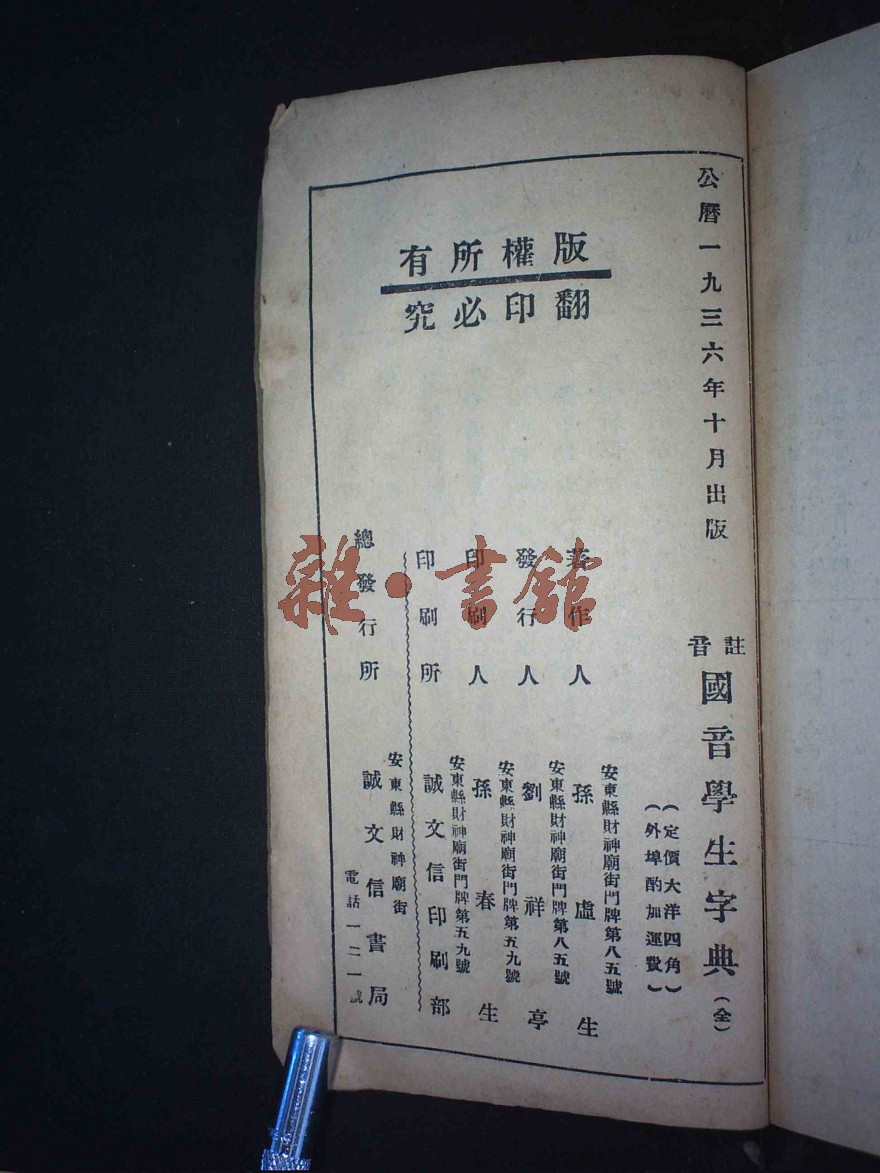 公曆一九三六年十月出版
註音
國音學生字典(全)
(定價大洋四角)
(外埠酌加運費)
版權所有
翻印必究
著作人
安東縣財神廟街門牌第八五號
孫虛生
發行人
安東縣財神廟街門牌第八五號
劉祥亭
印刷人
安東縣財神廟街門牌第五九號
孫春生
印刷所
安東縣財神廟街門牌第五九號
誠文信印刷部
總發行所
安東縣財神廟街
誠文信書局
電話一二一號
雜·書館